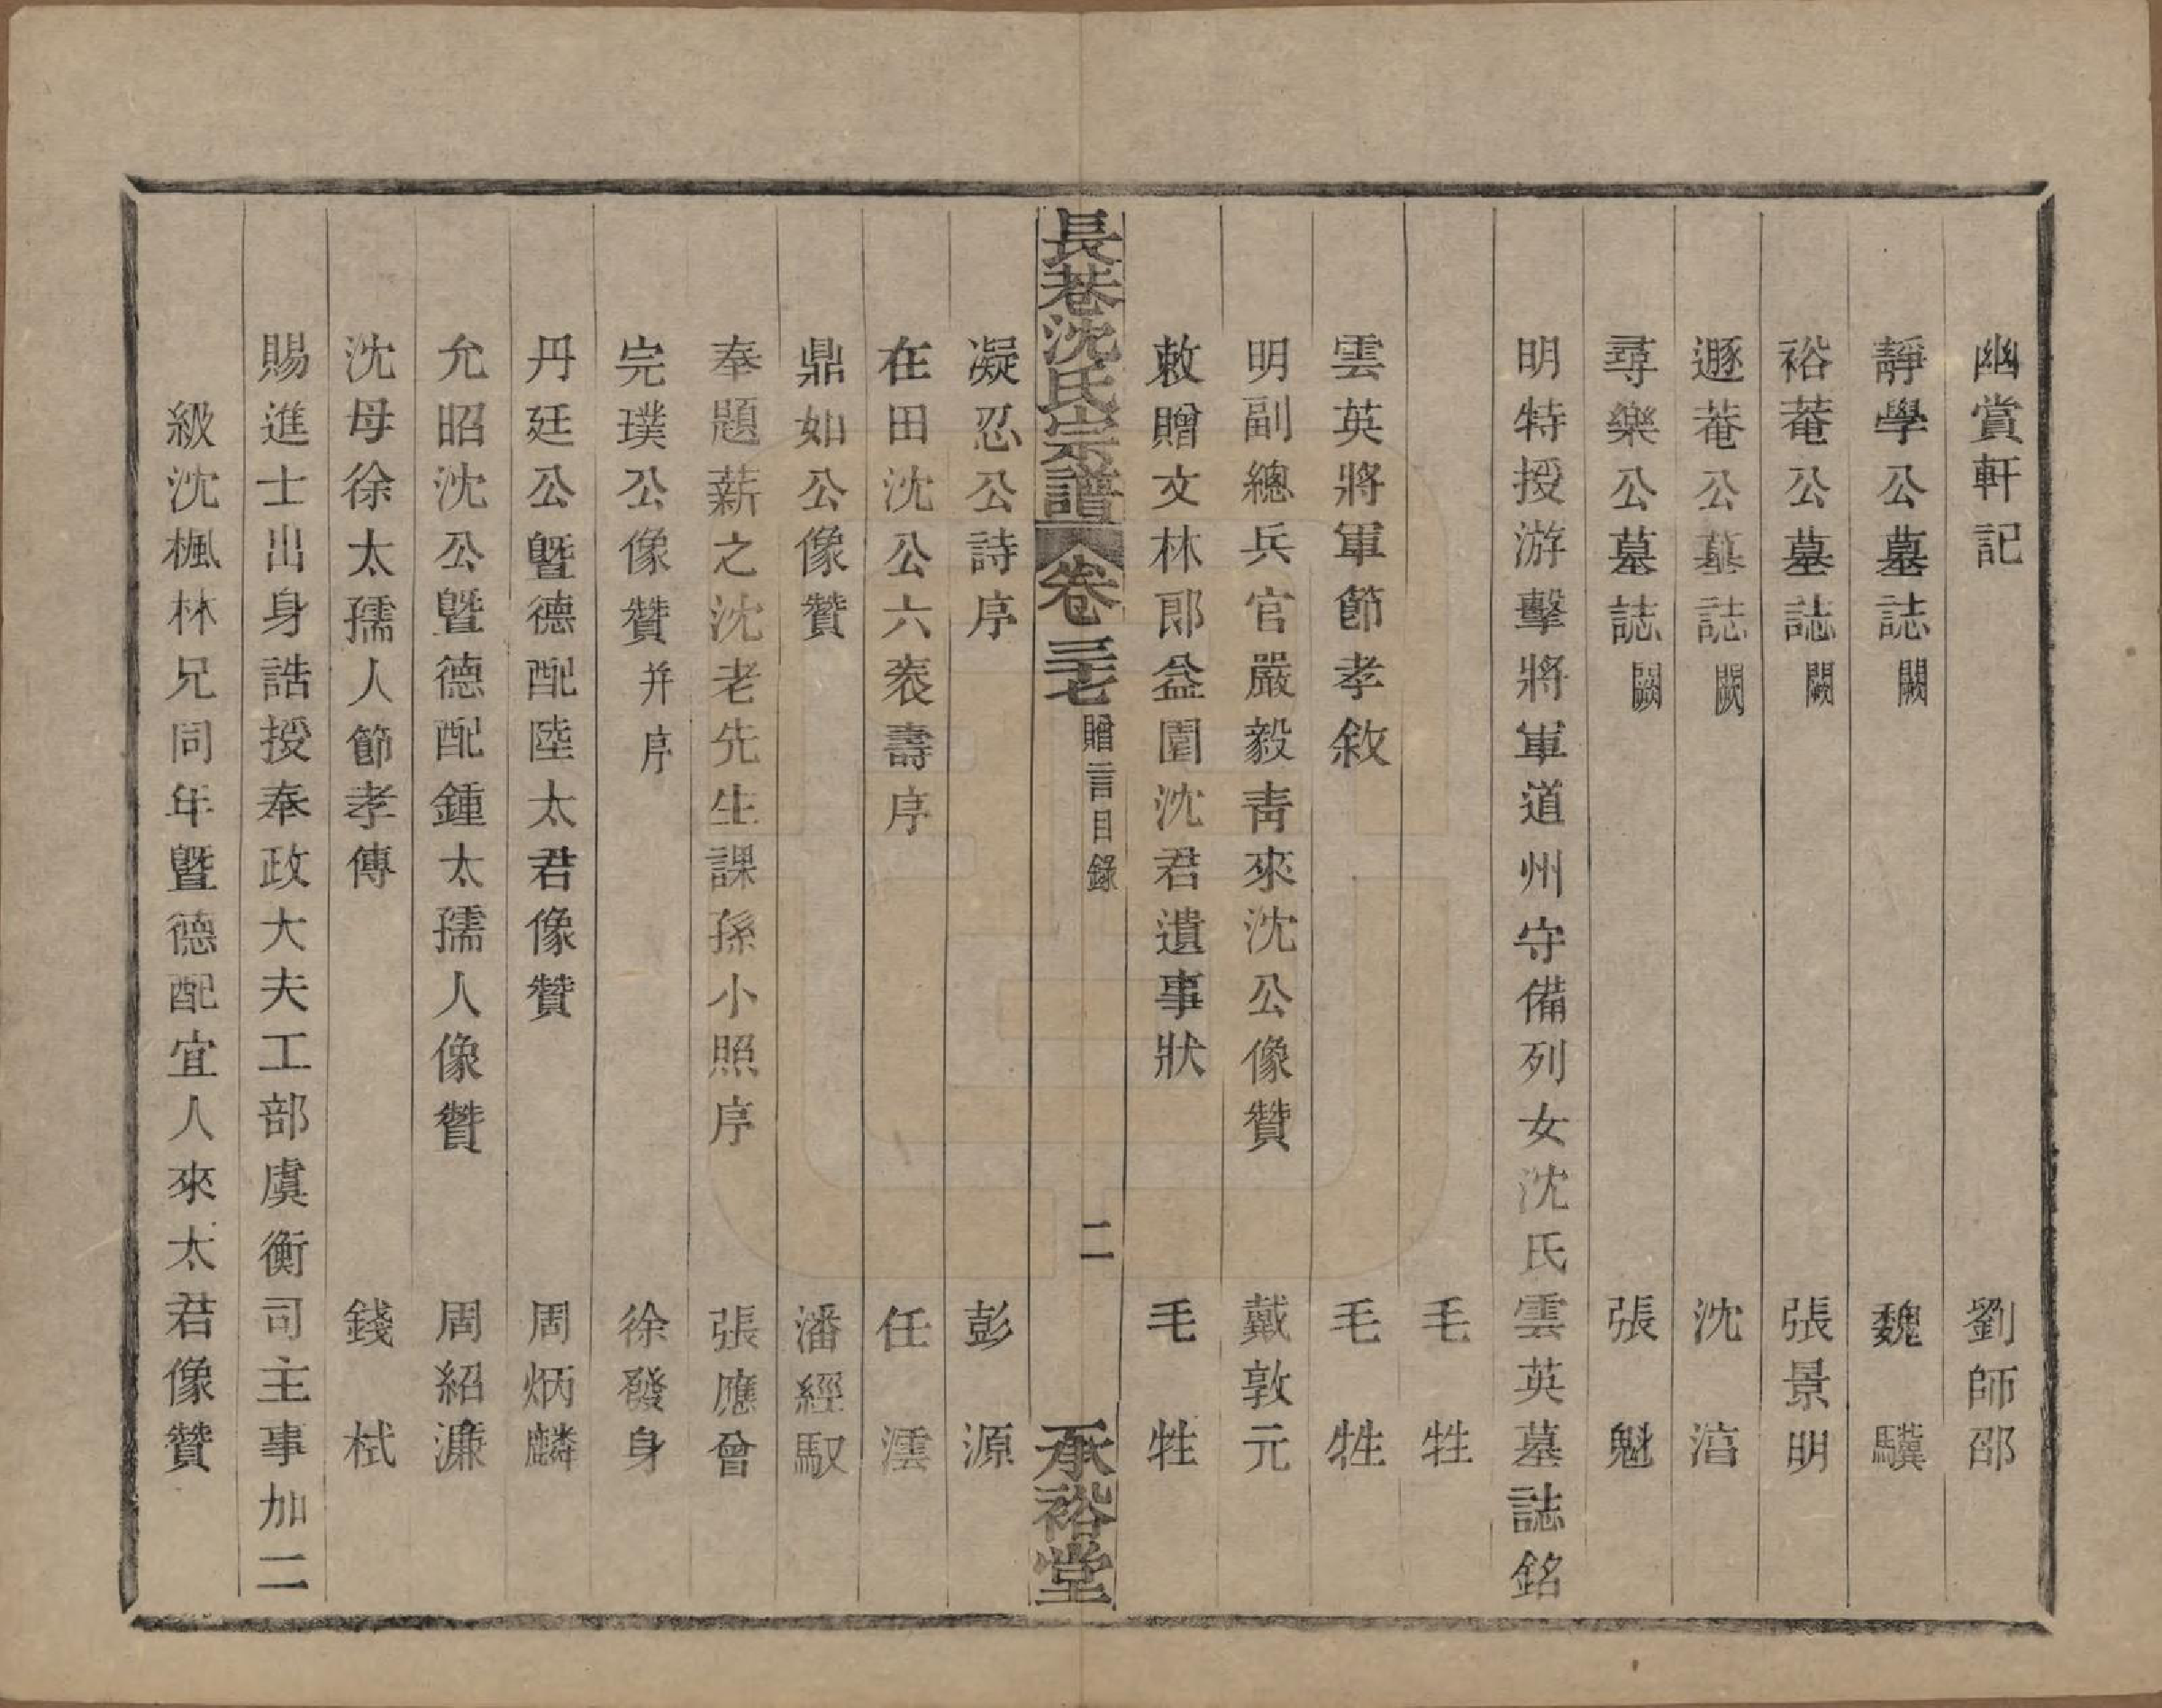 幽賞軒記　劉師邵
靜學公墓誌闕　魏驥
裕菴公墓誌闕　張景明
遯菴公墓誌闕　沈㳷
尋樂公墓誌闕　張魁
明特授游擊將軍道州守備列女沈氏雲英墓誌銘
毛甡
雲英將軍節孝敘　毛甡
明副總兵官嚴毅靑來沈公像贊　戴敦元
敕贈文林郎益園沈君遺事狀　毛甡
長巷沈氏宗譜　卷三十七　贈言目錄　二　承裕堂
凝忍公詩序　彭源
在田沈公六袠壽序　任澐
鼎如公像贊　潘經馭
奉題薪之沈老先生課孫小照序　張應曾
完璞公像贊并序　徐發身
丹廷公曁德配陸太君像贊　周炳麟
允昭沈公曁德配鍾太孺人像贊　周紹濂
沈母徐太孺人節孝傳　錢栻
賜進士出身誥授奉政大夫工部虞衡司主事加二
級沈楓林兄同年曁德配宜人來太君像贊